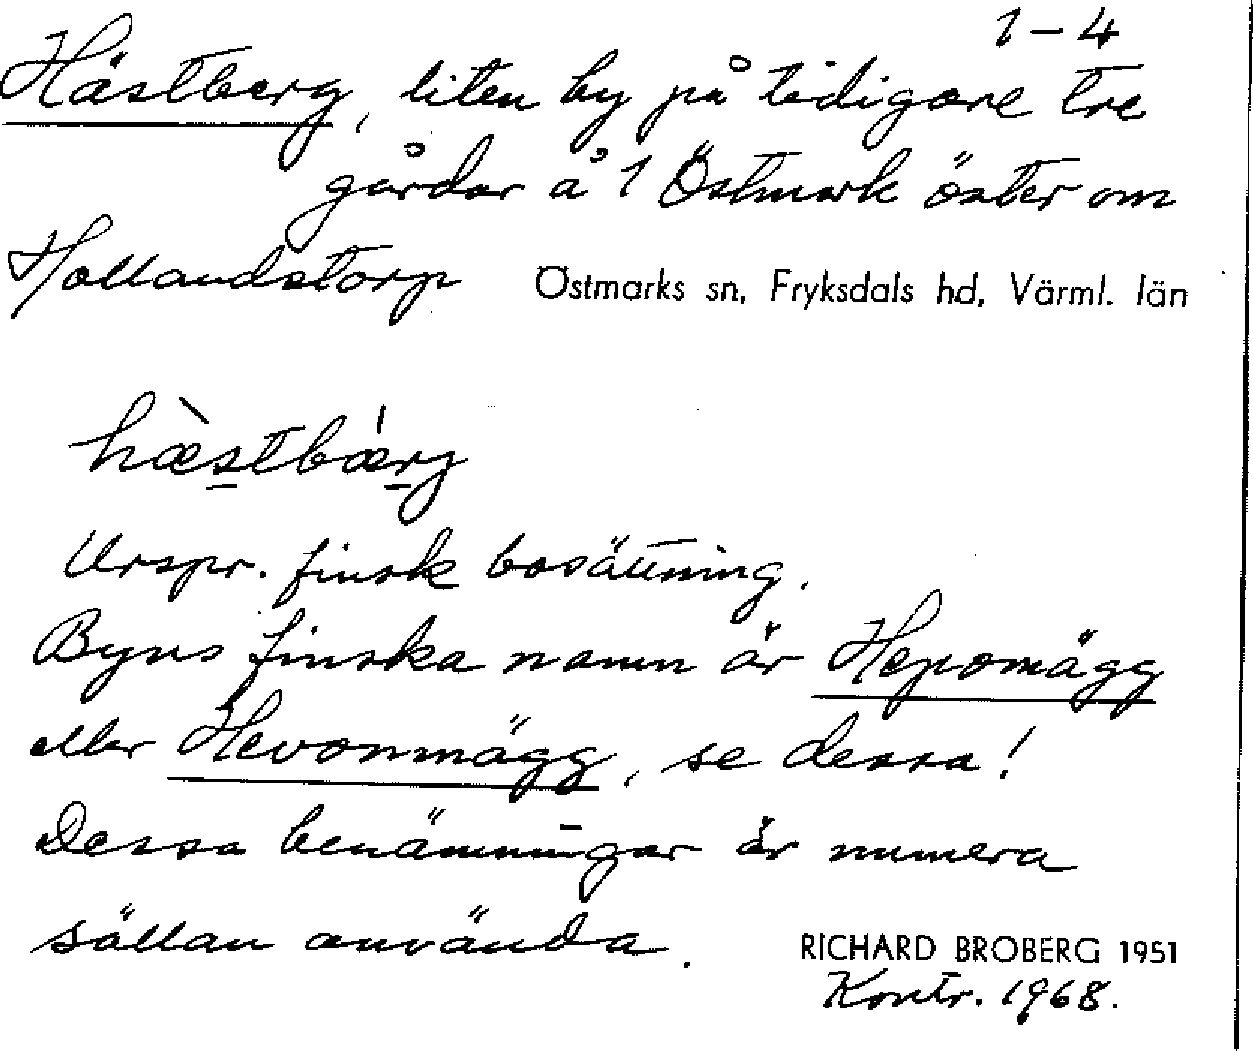 1–4
Hästberg, liten by på tidigare tre
gårdar å 1 Östmark öster om
Hollandstorp Östmarks sn, Fryksdals hd, Värml. län
hæ̀stbǽrj
Urspr. finsk bosättning.
Byns finska namn är Hepomägg
eller Hevonmägg, se dessa!
Dessa benämningar är numera
sällan använda.
RICHARD BROBERG 1951
Kontr. 1968.